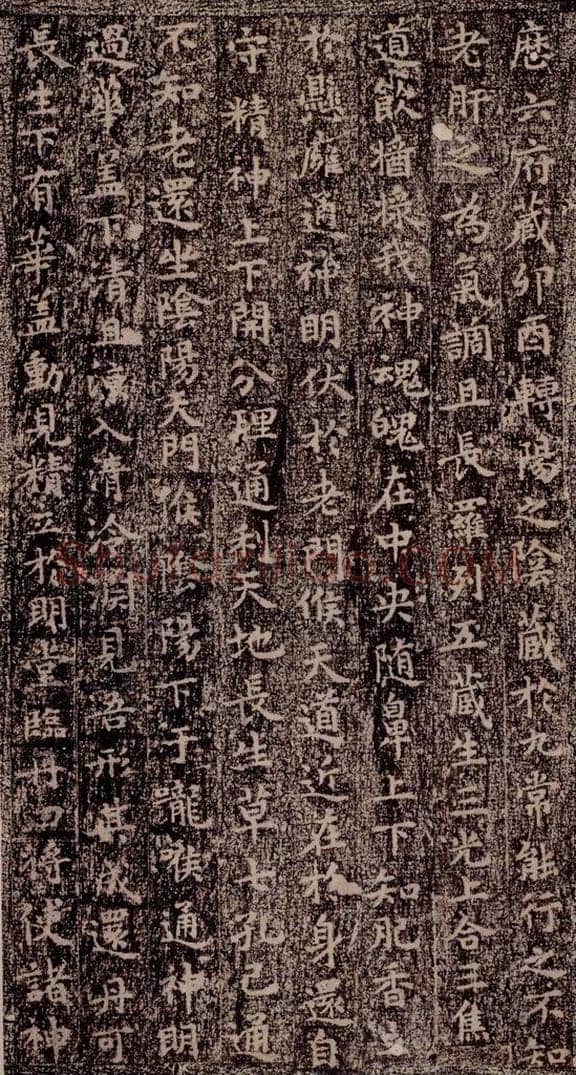 歷六府藏卯酉轉陽之陰藏於九常能行之不知
老肝之為氣調且長羅列五藏生三光上合三焦
道飲醬漿我神魂魄在中央隨鼻上下知肥香立
於懸廱通神明伏於老門候天道近在於身還自
守精神上下開分理通利天地長生草七孔已通
不知老還坐陰陽天門候陰陽下于嚨喉通神明
過華蓋下清且涼入清泠淵見吾形其成還丹可
長生下有華蓋動見精立於明堂臨丹田將使諸神